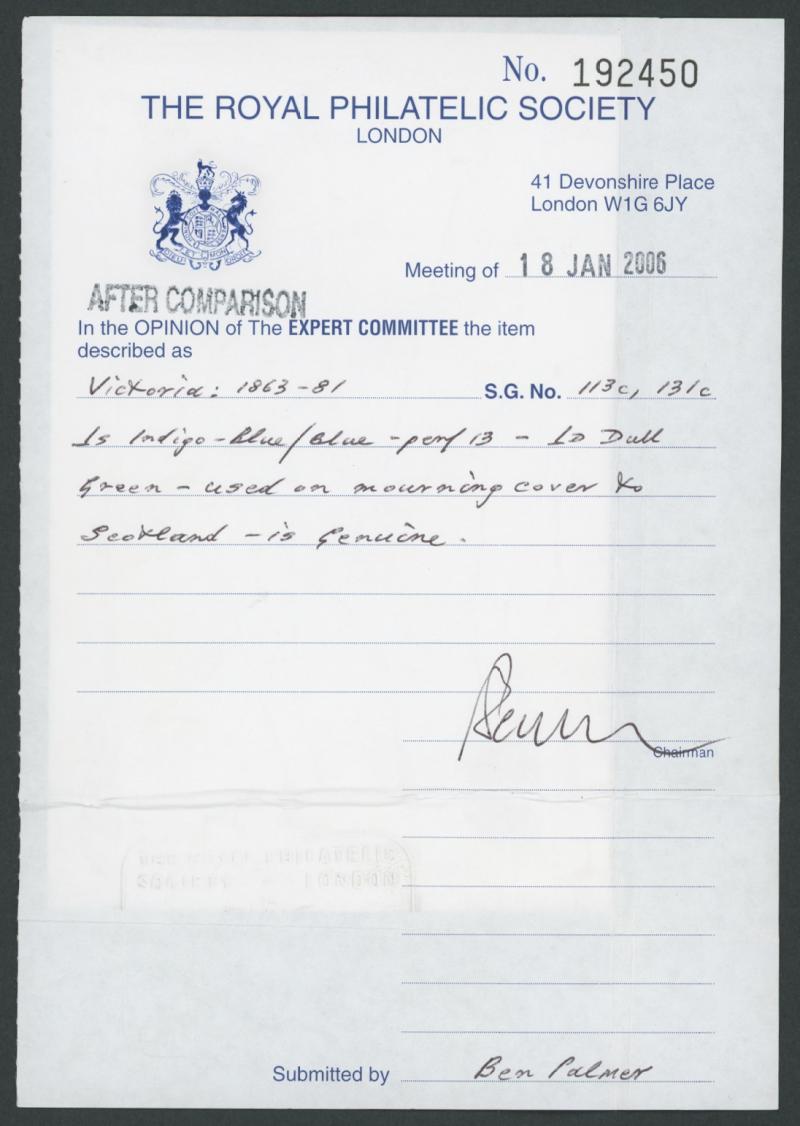 No. 192450
THE ROYAL PHILATELIC SOCIETY
LONDON
41 Devonshire Place
London W1G 6JY
Meeting of 18 JAN 2006
AFTER COMPARISON
In the OPINION of The EXPERT COMMITTEE the item
described as
Victoria: 1863-81 S.G. No. 113c, 131c
1s Indigo-Blue/Blue - perf 13 - 1D Dull
Green - used on mourning cover to
Scotland - is Genuine.
Chairman
Submitted by Ben Palmer